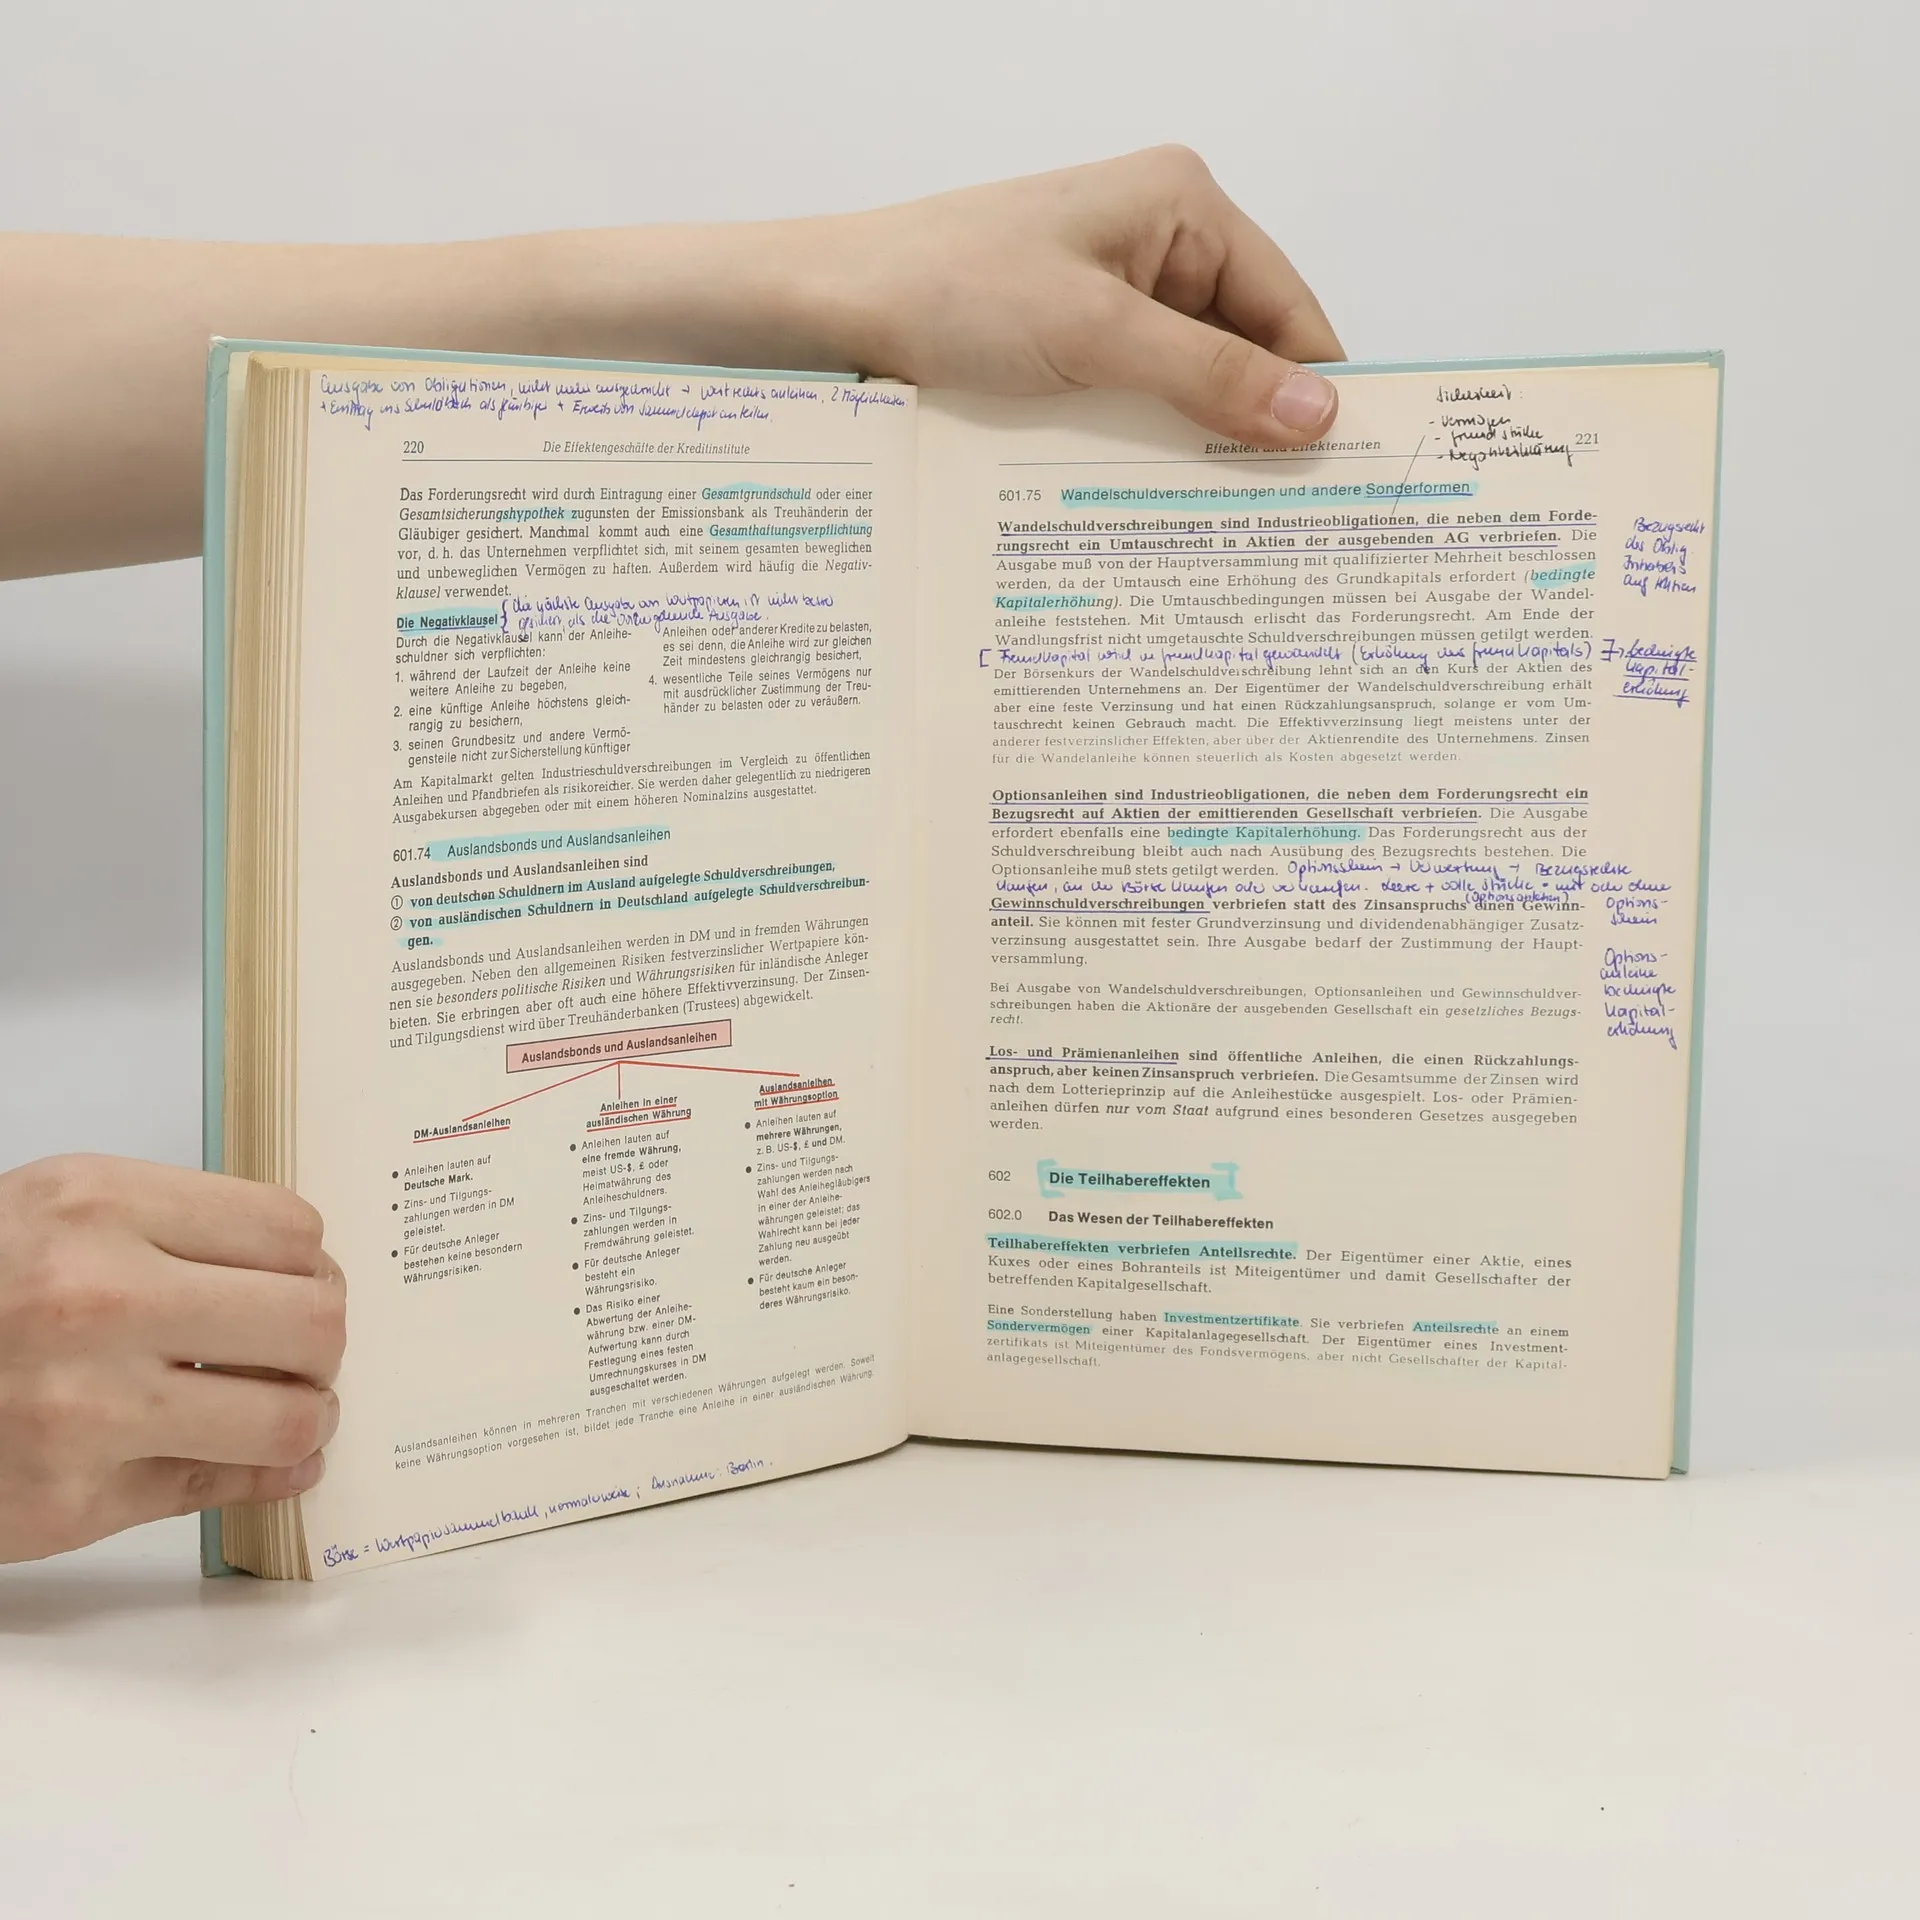 Ausgabe von Obligationen, nicht mehr ausgedruckt → Wertrechtsanleihen, 2 Möglichkeiten
+ Eintrag ins Schuldbuch als Gläubiger + Erwerb von Sammeldepotanteilen.
220 Die Effektengeschäfte der Kreditinstitute
Das Forderungsrecht wird durch Eintragung einer Gesamtgrundschuld oder einer
Gesamtsicherungshypothek zugunsten der Emissionsbank als Treuhänderin der
Gläubiger gesichert. Manchmal kommt auch eine Gesamthaftungsverpflichtung
vor, d. h. das Unternehmen verpflichtet sich, mit seinem gesamten beweglichen
und unbeweglichen Vermögen zu haften. Außerdem wird häufig die Negativ-
klausel verwendet.
die nächste Ausgabe von Wertpapieren ist nicht besser
Die Negativklausel gesichert, als die vorhergehende Ausgabe.
Durch die Negativklausel kann der Anleihe-
schuldner sich verpflichten:
1. während der Laufzeit der Anleihe keine
weitere Anleihe zu begeben,
2. eine künftige Anleihe höchstens gleich-
rangig zu besichern,
3. seinen Grundbesitz und andere Vermö-
gensteile nicht zur Sicherstellung künftiger
Anleihen oder anderer Kredite zu belasten,
es sei denn, die Anleihe wird zur gleichen
Zeit mindestens gleichrangig besichert,
4. wesentliche Teile seines Vermögens nur
mit ausdrücklicher Zustimmung der Treu-
händer zu belasten oder zu veräußern.
Am Kapitalmarkt gelten Industrieschuldverschreibungen im Vergleich zu öffentlichen
Anleihen und Pfandbriefen als risikoreicher. Sie werden daher gelegentlich zu niedrigeren
Ausgabekursen abgegeben oder mit einem höheren Nominalzins ausgestattet.
601.74 Auslandsbonds und Auslandsanleihen
Auslandsbonds und Auslandsanleihen sind
① von deutschen Schuldnern im Ausland aufgelegte Schuldverschreibungen,
② von ausländischen Schuldnern in Deutschland aufgelegte Schuldverschreibun-
gen.
Auslandsbonds und Auslandsanleihen werden in DM und in fremden Währungen
ausgegeben. Neben den allgemeinen Risiken festverzinslicher Wertpapiere kön-
nen sie besonders politische Risiken und Währungsrisiken für inländische Anleger
bieten. Sie erbringen aber oft auch eine höhere Effektivverzinsung. Der Zinsen-
und Tilgungsdienst wird über Treuhänderbanken (Trustees) abgewickelt.
Auslandsbonds und Auslandsanleihen
DM-Auslandsanleihen
● Anleihen lauten auf
Deutsche Mark.
● Zins- und Tilgungs-
zahlungen werden in DM
geleistet.
● Für deutsche Anleger
bestehen keine besondern
Währungsrisiken.
Anleihen in einer
ausländischen Währung
● Anleihen lauten auf
eine fremde Währung,
meist US-$, £ oder
Heimatwährung des
Anleiheschuldners.
● Zins- und Tilgungs-
zahlungen werden in
Fremdwährung geleistet.
● Für deutsche Anleger
besteht ein
Währungsrisiko.
● Das Risiko einer
Abwertung der Anleihe-
währung bzw. einer DM-
Aufwertung kann durch
Festlegung eines festen
Umrechnungskurses in DM
ausgeschaltet werden.
Auslandsanleihen
mit Währungsoption
● Anleihen lauten auf
mehrere Währungen,
z. B. US-$, £ und DM.
● Zins- und Tilgungs-
zahlungen werden nach
Wahl des Anleihegläubigers
in einer der Anleihe-
währungen geleistet; das
Wahlrecht kann bei jeder
Zahlung neu ausgeübt
werden.
● Für deutsche Anleger
besteht kaum ein beson-
deres Währungsrisiko.
Auslandsanleihen können in mehreren Tranchen mit verschiedenen Währungen aufgelegt werden. Soweit
keine Währungsoption vorgesehen ist, bildet jede Tranche eine Anleihe in einer ausländischen Währung.
Börse = Wertpapiersammelbank, normalerweise; Ausnahme: Berlin.
Sicherheit:
- Vermögen
- Grundstücke
- Negativerklärung
Effekten und Effektenarten 221
601.75 Wandelschuldverschreibungen und andere Sonderformen
Wandelschuldverschreibungen sind Industrieobligationen, die neben dem Forde-
rungsrecht ein Umtauschrecht in Aktien der ausgebenden AG verbriefen. Die
Ausgabe muß von der Hauptversammlung mit qualifizierter Mehrheit beschlossen
werden, da der Umtausch eine Erhöhung des Grundkapitals erfordert (bedingte
Kapitalerhöhung). Die Umtauschbedingungen müssen bei Ausgabe der Wandel-
anleihe feststehen. Mit Umtausch erlischt das Forderungsrecht. Am Ende der
Wandlungsfrist nicht umgetauschte Schuldverschreibungen müssen getilgt werden.
Bezugsrecht
des Oblig.
Inhabers
auf Aktien
[ Fremdkapital wird in Grundkapital gewandelt (Erhöhung des Grundkapitals) ] → bedingte
Kapital-
erhöhung
Der Börsenkurs der Wandelschuldverschreibung lehnt sich an den Kurs der Aktien des
emittierenden Unternehmens an. Der Eigentümer der Wandelschuldverschreibung erhält
aber eine feste Verzinsung und hat einen Rückzahlungsanspruch, solange er vom Um-
tauschrecht keinen Gebrauch macht. Die Effektivverzinsung liegt meistens unter der
anderer festverzinslicher Effekten, aber über der Aktienrendite des Unternehmens. Zinsen
für die Wandelanleihe können steuerlich als Kosten abgesetzt werden.
Optionsanleihen sind Industrieobligationen, die neben dem Forderungsrecht ein
Bezugsrecht auf Aktien der emittierenden Gesellschaft verbriefen. Die Ausgabe
erfordert ebenfalls eine bedingte Kapitalerhöhung. Das Forderungsrecht aus der
Schuldverschreibung bleibt auch nach Ausübung des Bezugsrechts bestehen. Die
Optionsanleihe muß stets getilgt werden. Optionsschein → Verwertung → Bezugsrechte
kaufen, an der Börse kaufen oder verkaufen. Leere + volle Stücke = mit oder ohne
Options-
schein
Gewinnschuldverschreibungen verbriefen statt des Zinsanspruchs einen Gewinn-
anteil. Sie können mit fester Grundverzinsung und dividendenabhängiger Zusatz-
verzinsung ausgestattet sein. Ihre Ausgabe bedarf der Zustimmung der Haupt-
versammlung.
Options-
anleihe
bedingte
Kapital-
erhöhung
Bei Ausgabe von Wandelschuldverschreibungen, Optionsanleihen und Gewinnschuldver-
schreibungen haben die Aktionäre der ausgebenden Gesellschaft ein gesetzliches Bezugs-
recht.
Los- und Prämienanleihen sind öffentliche Anleihen, die einen Rückzahlungs-
anspruch, aber keinen Zinsanspruch verbriefen. Die Gesamtsumme der Zinsen wird
nach dem Lotterieprinzip auf die Anleihestücke ausgespielt. Los- oder Prämien-
anleihen dürfen nur vom Staat aufgrund eines besonderen Gesetzes ausgegeben
werden.
602 Die Teilhabereffekten
602.0 Das Wesen der Teilhabereffekten
Teilhabereffekten verbriefen Anteilsrechte. Der Eigentümer einer Aktie, eines
Kuxes oder eines Bohranteils ist Miteigentümer und damit Gesellschafter der
betreffenden Kapitalgesellschaft.
Eine Sonderstellung haben Investmentzertifikate. Sie verbriefen Anteilsrechte an einem
Sondervermögen einer Kapitalanlagegesellschaft. Der Eigentümer eines Investment-
zertifikats ist Miteigentümer des Fondsvermögens, aber nicht Gesellschafter der Kapital-
anlagegesellschaft.